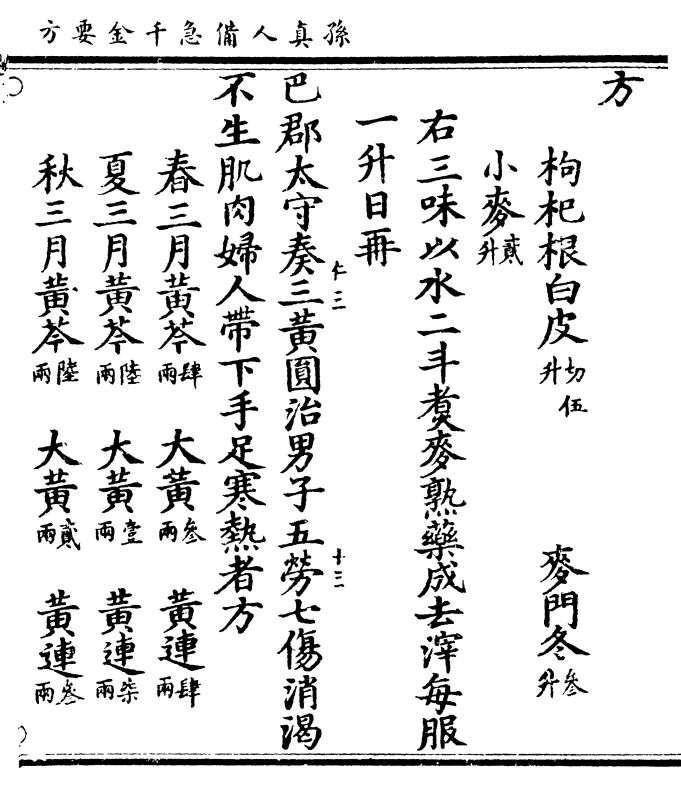 孫真人備急千金要方
方
枸杞根白皮切伍升 麥門冬叁升
小麥貳升
右三味以水二斗煑麥熟藥成去滓每服
一升日再
巴郡太守奏三黃圓治男子五勞七傷消渴
不生肌肉婦人帶下手足寒熱者方
春三月黃芩肆兩 大黃叁兩 黃連肆兩
夏三月黃芩陸兩 大黃壹兩 黃連柒兩
秋三月黃芩陸兩 大黃貳兩 黃連叁兩